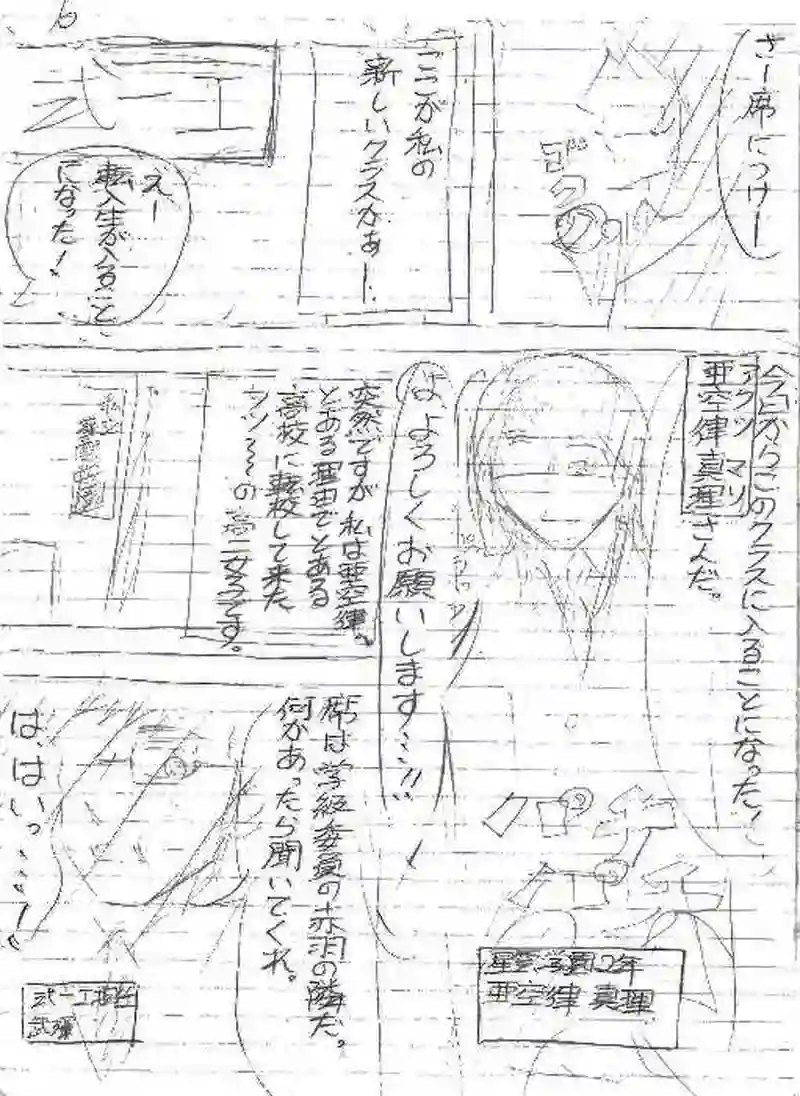 さー席につけー
ゴク
ここが私の
新しいクラスかぁー…
弐一工
えー
転入生が入ること
になった!
今日からこのクラスに入ることになった
アクツ マリ
亜空律真理さんだ。
は、よろしくお願いします…!!
突然ですが私は亜空律。
とある理由でとある
高校に転校して来た
の高二女子です。
私立
席は学級委員の赤羽の隣だ。
何かあったら聞いてくれ。
は、はいっ…!
学園2年
亜空律 真理
弐一工担任